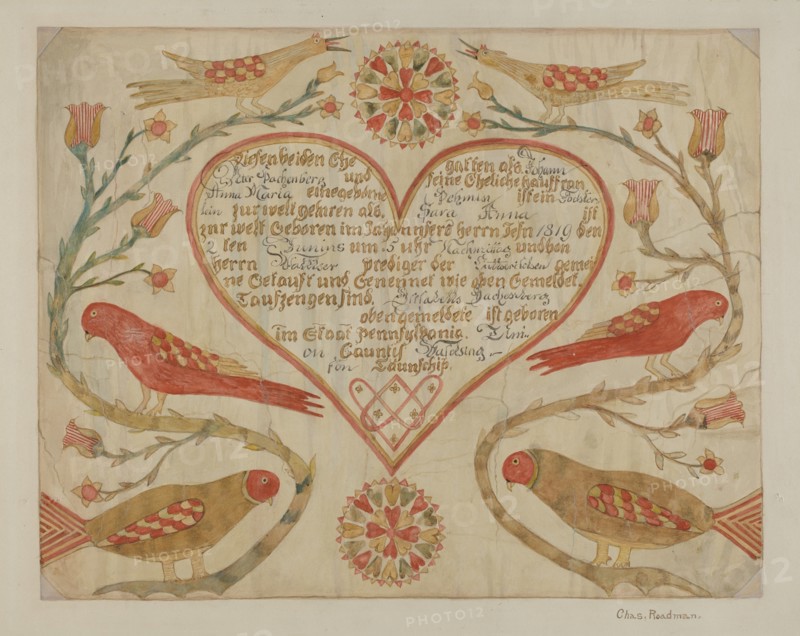 Diesen beiden Ehe gatten als Johann
und seine Eheliche hauffrau
Anna Maria eine geborne ist ein Tochter
lin zur welt gebren als, Sara Anna ist
zur welt Geboren im unsers herrn Jesu 1819 den
2 ten Junius um 5 uhr Nachmittag und von
herrn prediger der gemei
ne Getauft und Genennet wie oben Gemeldet.
Taufzeugen sind, Dachenberg
obengemeldete ist geboren
im Staat Pennsylvania. Uni-
on Caunty
Taunschip.
Chas. Roadman.
PHOTO12